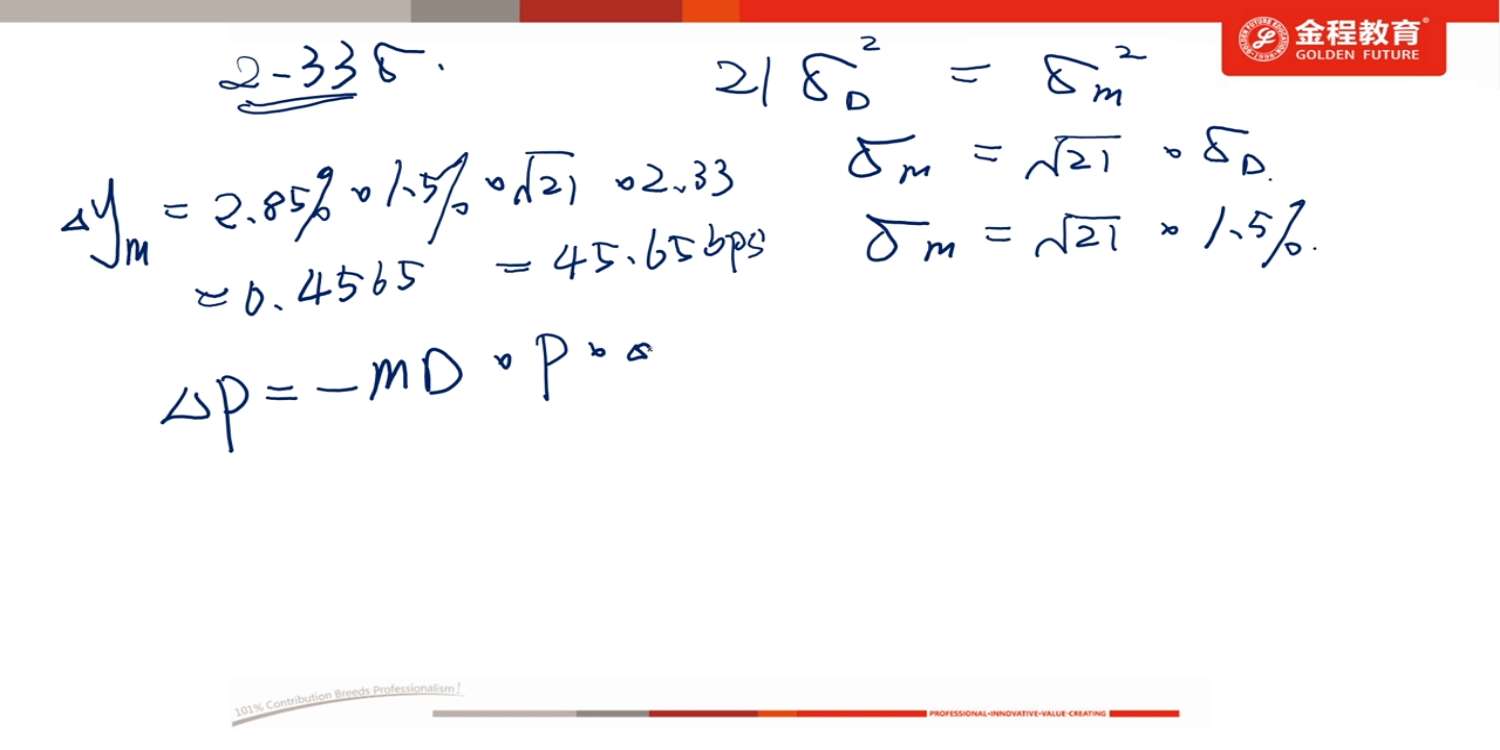 金程教育®
GOLDEN FUTURE
2-33σ.
21 σ_D² = σ_m²
σ_m = √21 · σ_D.
△y_m = 2.85% · 1.5% · √21 · 2.33
σ_m = √21 · 1.5%.
= 0.4565 = 45.65bps
△P = -MD · P · △
101% Contribution Breeds Professionalism!
PROFESSIONAL•INNOVATIVE•VALUE-CREATING